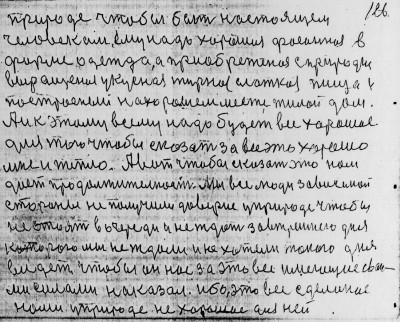 126.
природе чтобы быть настоящем
человеком, ему надо хорошая фасонная в
форме одежда, а приобретеная с природы
выращеная укусная жирная сладкая пища и
построеный на хорошем месте жилой дом.
А и к этому всему надо будет все хорошое
для того чтобы сказать за все это хорошо
мне и тепло. А вот чтобы сказать это нам
дает продолжительность. Мы все люди зависимой
стороны не получили доверие у природе чтобы
не стоять в очереди и не ждать завтришнего дня
которого мы не ждали и не хотели такого дня
видеть, чтобы он нас за это все имеющие сво-
ми силами наказал. ибо, это все сделаное
нами у природе не хорошое для ней.